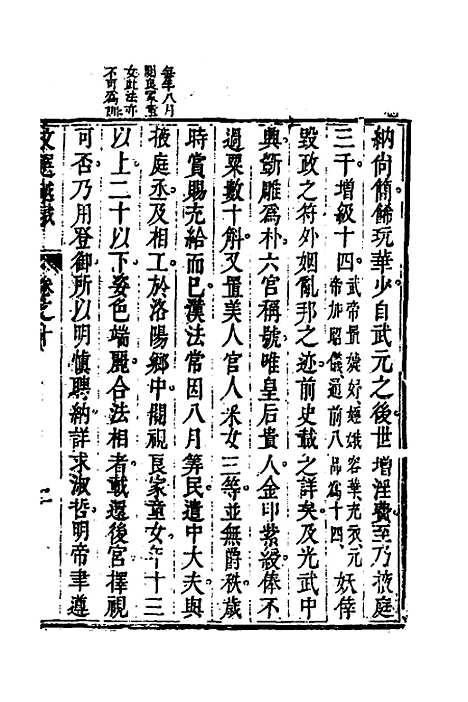 每年八月
閱良家童
女此法亦
不可爲訓
納尚簡飾玩華少自武元之後世增淫費至乃掖庭
三千增級十四武帝置婕妤、娙娥容華充衣、元帝加昭儀、通前八品爲十四、妖倖
毀政之符外姻亂邦之迹前史載之詳矣及光武中
興斵雕爲朴六宮稱號唯皇后貴人金印紫綬俸不
過粟數十斛又置美人宮人采女三等並無爵秩歲
時賞賜充給而已漢法常因八月筭民遣中大夫與
掖庭丞及相工於洛陽鄉中閱視良家童女年十三
以上二十以下姿色端麗合法相者載還後宮擇視
可否乃用登御所以明慎聘納詳求淑哲明帝聿遵
文選 卷之十 二